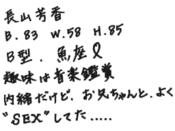 長山芳香
B.83 W.58 H.85
B型. 魚座♀
趣味は音楽鑑賞
内緒だけど、お兄ちゃんと、よく
"SEX"してた.....